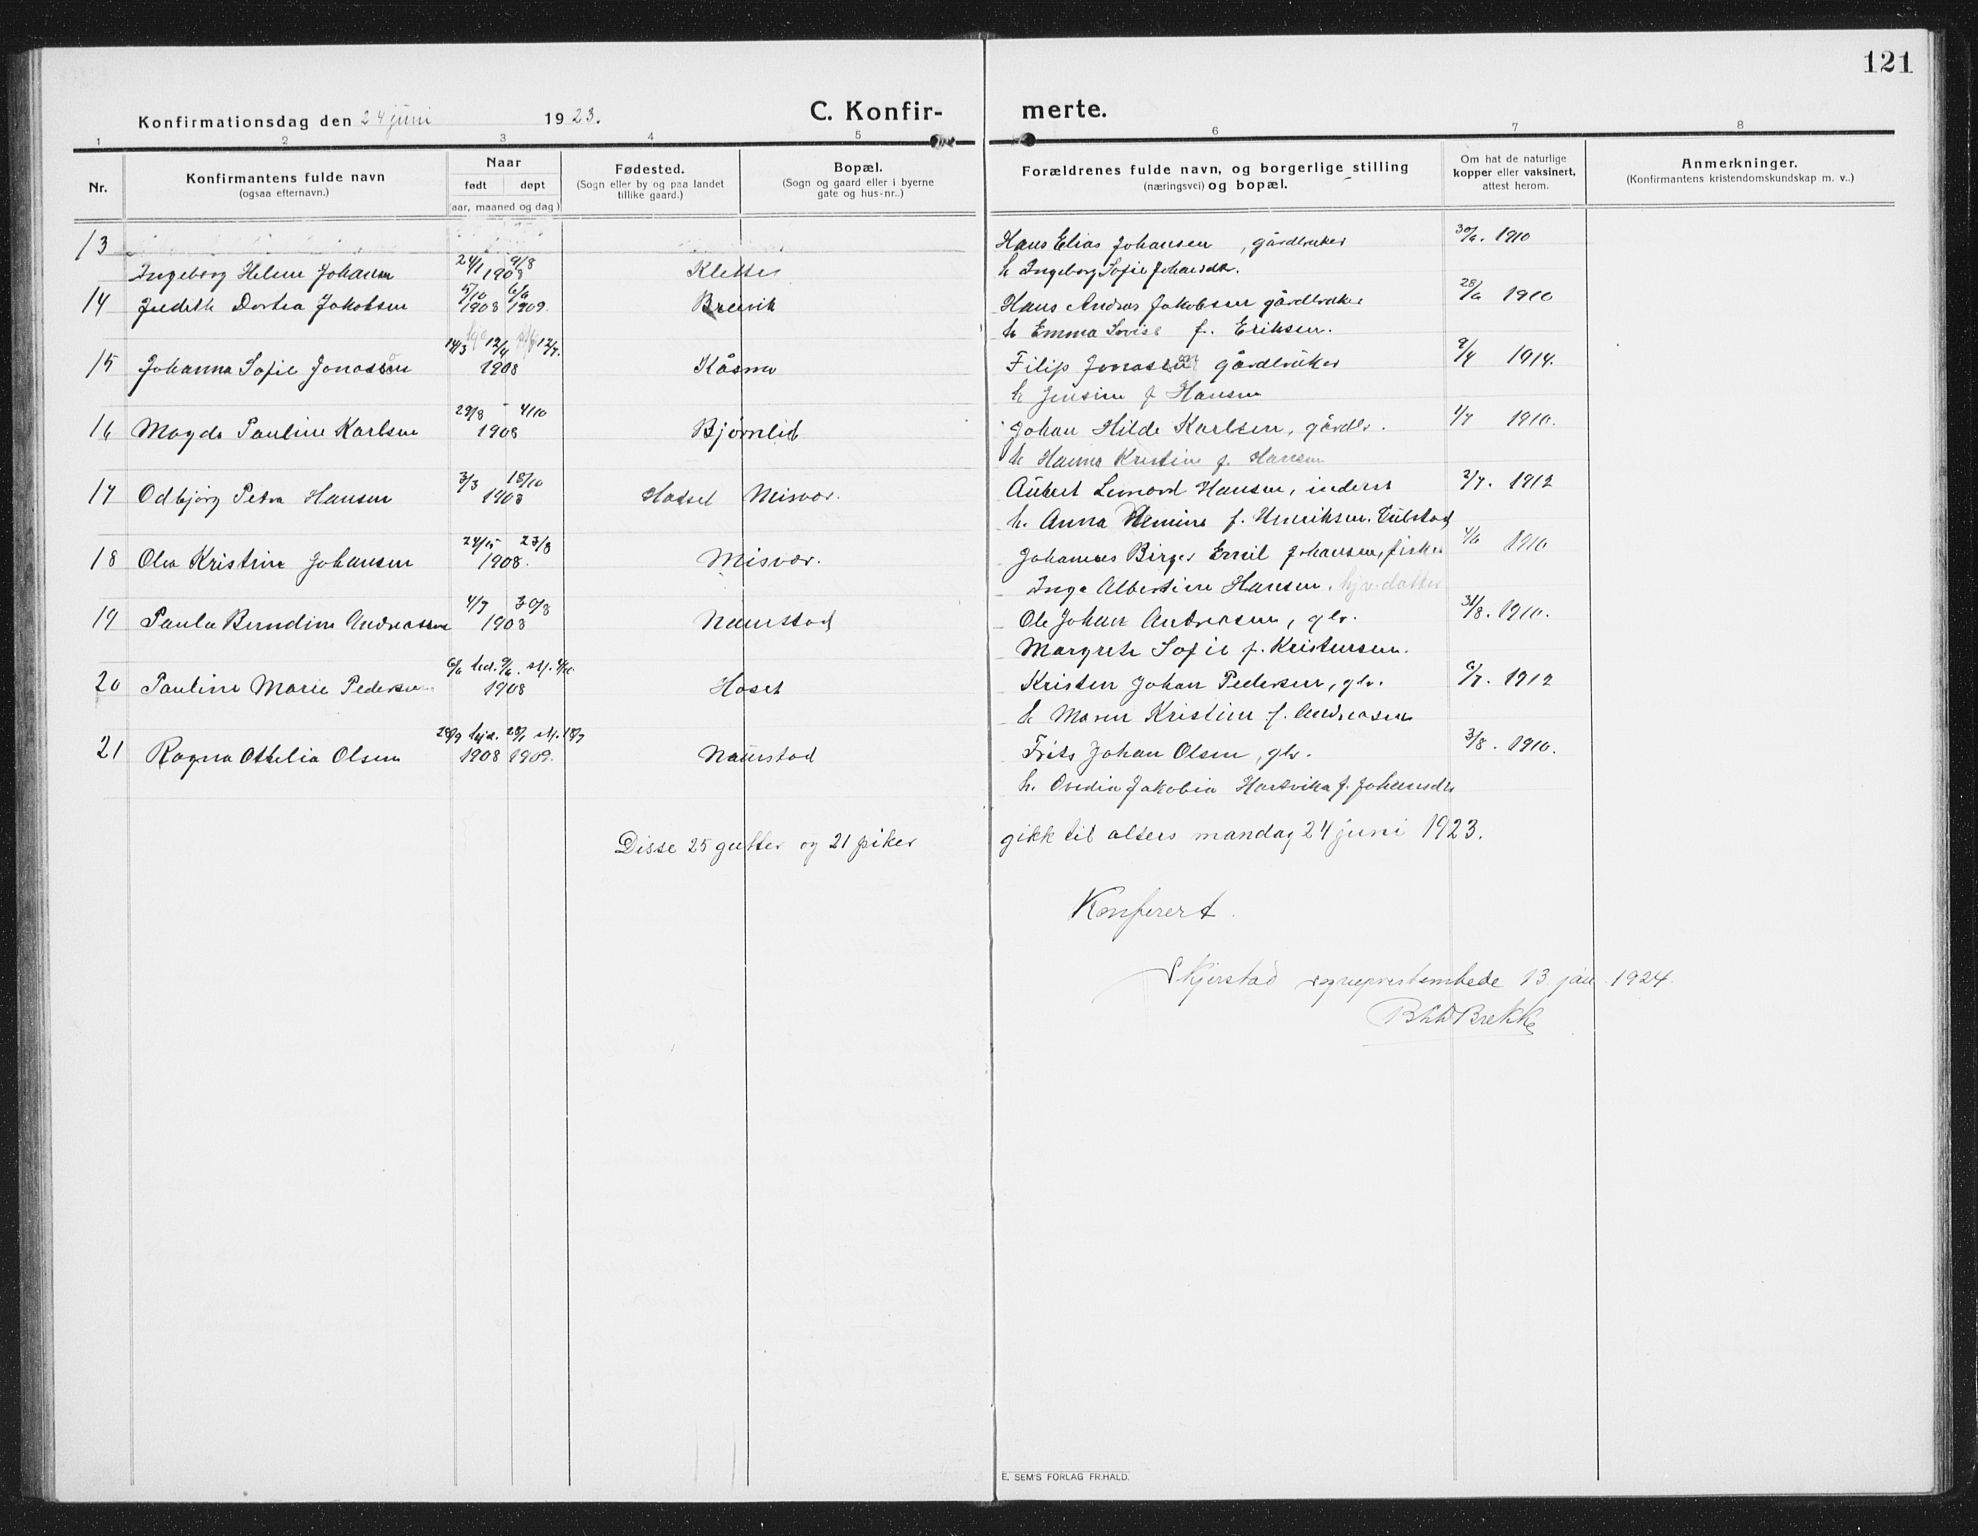 121
Konfirmationsdag den 24 juni 1923. C. Konfir- merte.
1 2 3 4 5 6 7 8
Nr. Konfirmantens fulde navn (ogsaa efternavn.) Naar født døpt (aar, maaned og dag) Fødested. (Sogn eller by og paa landet tillike gaard.) Bopæl. (Sogn og gaard eller i byerne gate og hus-nr..) Forældrenes fulde navn, og borgerlige stilling (næringsvei) og bopæl. Om hat de naturlige kopper eller vaksinert, attest herom. Anmerkninger. (Konfirmantens kristendomskundskap m. v..)
13 Hans Elias Johansen, gårdbruker 30/6. 1910
Ingeborg Helene Johansen 24/1 9/8 1908 Kletten h Ingeborg Sofie Johansdr.
14 Judith Dortea Jakobsen 5/10 1908 6/6 1909. Breivik Hans Andreas Jakobsen gårdbruker 28/6 1910
h Emma Lovise f. Eriksen.
15 Johanna Sofie Jonassen 14/3 12/4 12/7. 1908 Kåsmo Filip Jonassen gårdbruker 9/4 1914.
h Jensine f Hansen
16 Magda Pauline Karlsen 29/8 - 4/10 1908 Bjørnlid Johan Hilde Karlsen, gårdbr. 1/7 1910.
h Hanna Kristine f. Hansen
17 Odbjörg Petra Hansen 3/3 18/10 1908 Hosset Misvær. Aubert Leonard Hansen, inderst 2/7. 1912
h. Anna Hemine f. Henriksen.
18 Olea Kristine Johansen 24/5 23/8 1908. Misvær. Johannes Birger Emil Johansen, fisker 4/6 1910
Inga Albertine Hansen, hjv. datter
19 Paula Berndine Andreassen 4/7 30/8 1908 Naurstad Ole Johan Andreasen, gbr. 31/8. 1910.
Margrete Sofie f. Kristensen.
20 Pauline Marie Pedersen 6/6 hd. 9/6. st. 4/10. 1908 Hoset Kristen Johan Pedersen, gbr. 6/7. 1912
h Maren Kristine f. Andreasen
21 Ragna Othelia Olsen 28/9 hjd. 28/1 st. 18/7 1908 1909. Naurstad Frits Johan Olsen, gbr. 3/8. 1910.
h. Ovedia Jakobia Hartvika f. Johansdr
Disse 25 gutter og 21 piker gikk til alters mandag 24 juni 1923.
Konferert.
Skjerstad sogneprestembede 13 jan. 1924.
Brekke
E. SEM'S FORLAG FR.HALD.